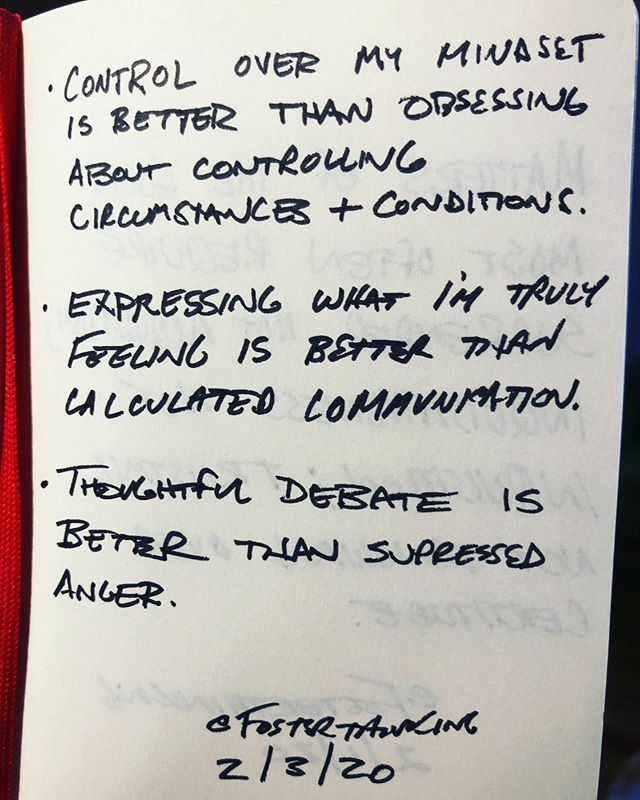 · CONTROL OVER MY MINDSET
IS BETTER THAN OBSESSING
ABOUT CONTROLLING
CIRCUMSTANCES + CONDITIONS.
· EXPRESSING WHAT I'M TRULY
FEELING IS BETTER THAN
CALCULATED COMMUNICATION.
· THOUGHTFUL DEBATE IS
BETTER THAN SUPRESSED
ANGER.
@FOSTERTHINKING
2/3/20